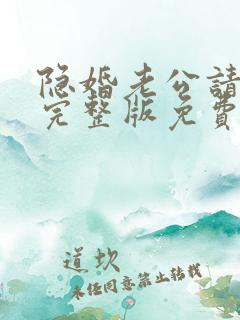 隐婚老公請
完整版免費
道坎
未经同意禁止转载